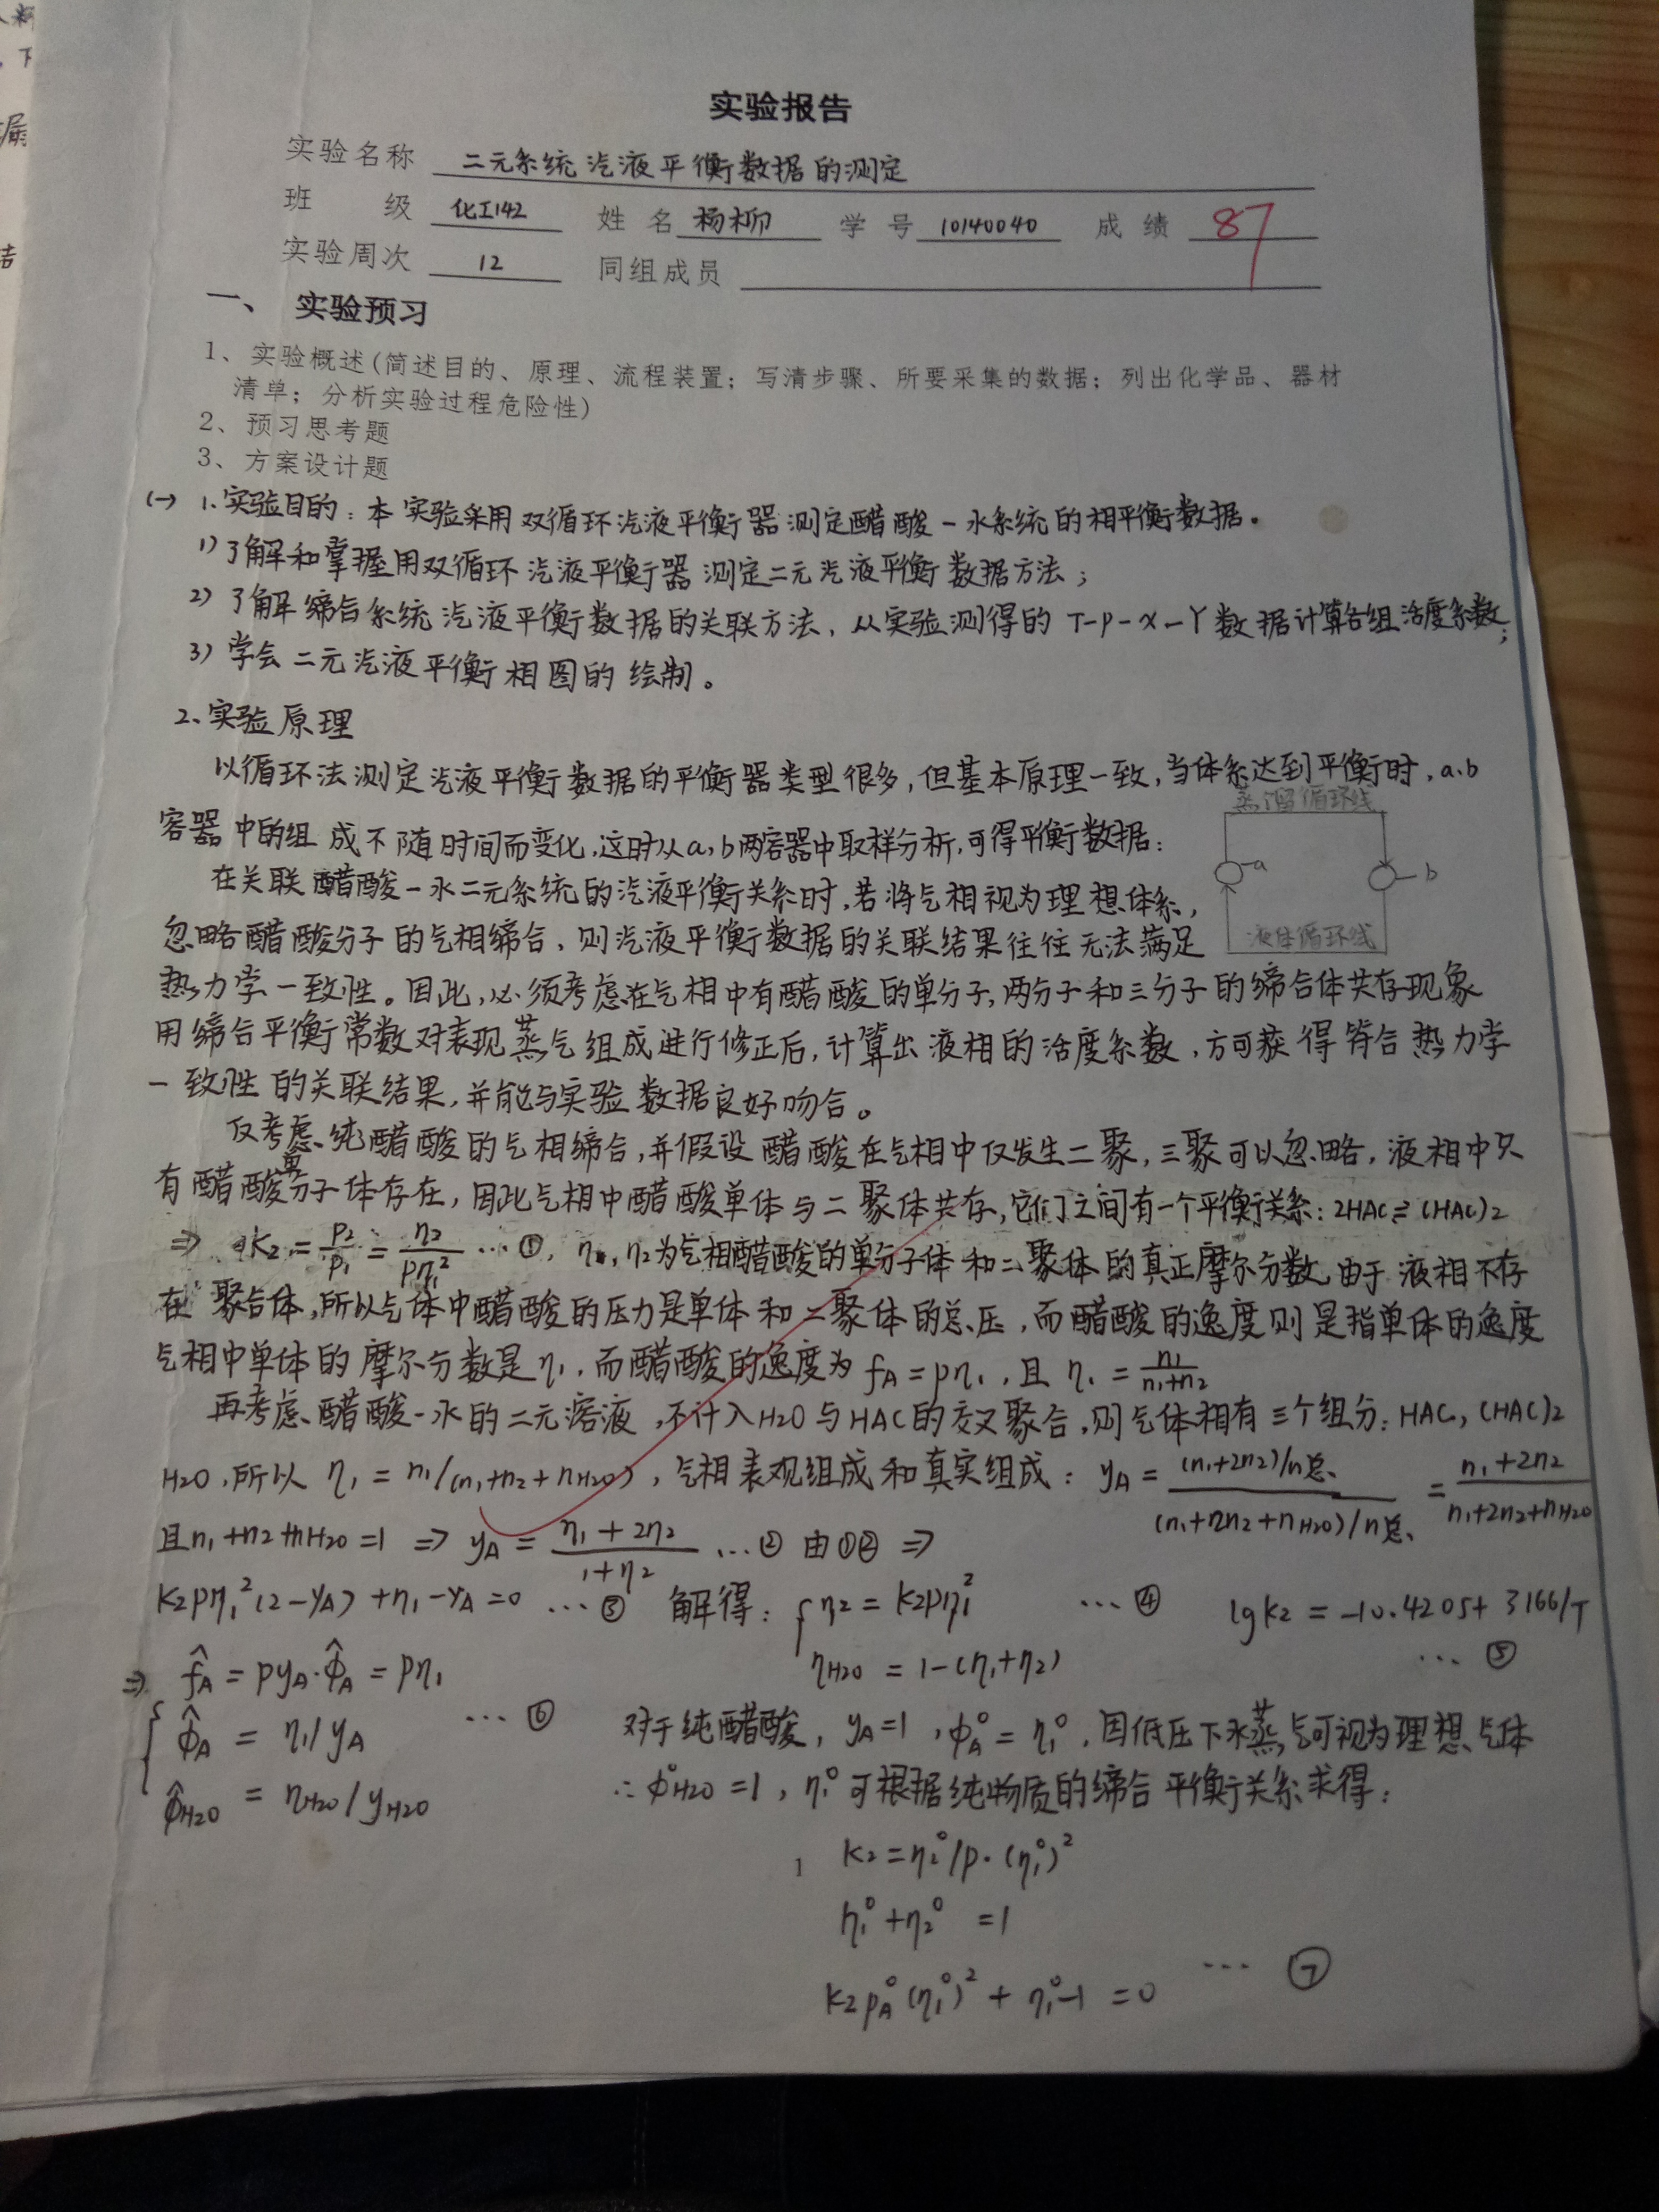 实验报告
实验名称 二元系统汽液平衡数据的测定
班 级 化工142 姓名 杨柳 学号 10140040 成绩 87
实验周次 12 同组成员
一、 实验预习
1、实验概述(简述目的、原理、流程装置；写清步骤、所要采集的数据；列出化学品、器材
清单；分析实验过程危险性)
2、预习思考题
3、方案设计题
(一) 1.实验目的：本实验采用双循环汽液平衡器测定醋酸-水系统的相平衡数据。
1)了解和掌握用双循环汽液平衡器测定二元汽液平衡数据方法；
2)了解缔合系统汽液平衡数据的关联方法，从实验测得的T-P-X-Y数据计算各组活度系数；
3)学会二元汽液平衡相图的绘制。
2、实验原理
以循环法测定汽液平衡数据的平衡器类型很多，但基本原理一致，当体系达到平衡时，a、b
容器中的组成不随时间而变化，这时从a，b两容器中取样分析，可得平衡数据：
蒸馏循环线
a
b
液体循环线
在关联醋酸-水二元系统的汽液平衡关系时，若将气相视为理想体系，
忽略醋酸分子的气相缔合，则汽液平衡数据的关联结果往往无法满足
热力学一致性。因此，必须考虑在气相中有醋酸的单分子，两分子和三分子的缔合体共存现象
用缔合平衡常数对表现蒸气组成进行修正后，计算出液相的活度系数，方可获得符合热力学
一致性的关联结果，并能与实验数据良好吻合。
仅考虑纯醋酸的气相缔合，并假设醋酸在气相中仅发生二聚，三聚可以忽略，液相中只
有醋酸单分子体存在，因此气相中醋酸单体与二聚体共存，它们之间有一个平衡关系：2HAC⇌(HAC)2
⇒ K2=P2/P1=η2/Pη1² …①，η1，η2为气相醋酸的单分子体和二聚体的真正摩尔分数，由于液相不存
在聚合体，所以气体中醋酸的压力是单体和二聚体的总压，而醋酸的逸度则是指单体的逸度
气相中单体的摩尔分数是η1，而醋酸的逸度为fA=Pη1，且η1=n1/n1+n2
再考虑醋酸-水的二元溶液，不计入H2O与HAC的交叉聚合，则气体相有三个组分：HAC，(HAC)2
H2O，所以η1=n1/(n1+n2+nH2O)，气相表观组成和真实组成：yA=(n1+2n2)/n总/(n1+2n2+nH2O)/n总=n1+2n2/n1+2n2+nH2O
且n1+n2+nH2O=1 ⇒ yA=η1+2η2/1+η2 …② 由①② ⇒
K2Pη1²(2-yA)+η1-yA=0 …③ 解得：{η2=K2Pη1² …④ lgK2=-10.4205+3166/T
ηH2O=1-(η1+η2) …⑤
⇒ f̂A=PyA·φ̂A=Pη1
{φ̂A=η1/yA …⑥ 对于纯醋酸，yA=1，φA°=η1°，因低压下水蒸气可视为理想气体
φ̂H2O=ηH2O/yH2O ∴φ°H2O=1，η1°可根据纯物质的缔合平衡关系求得：
K2=η2°/P·(η1°)²
1
η1°+η2°=1
K2PA°(η1°)²+η1°-1=0 …⑦